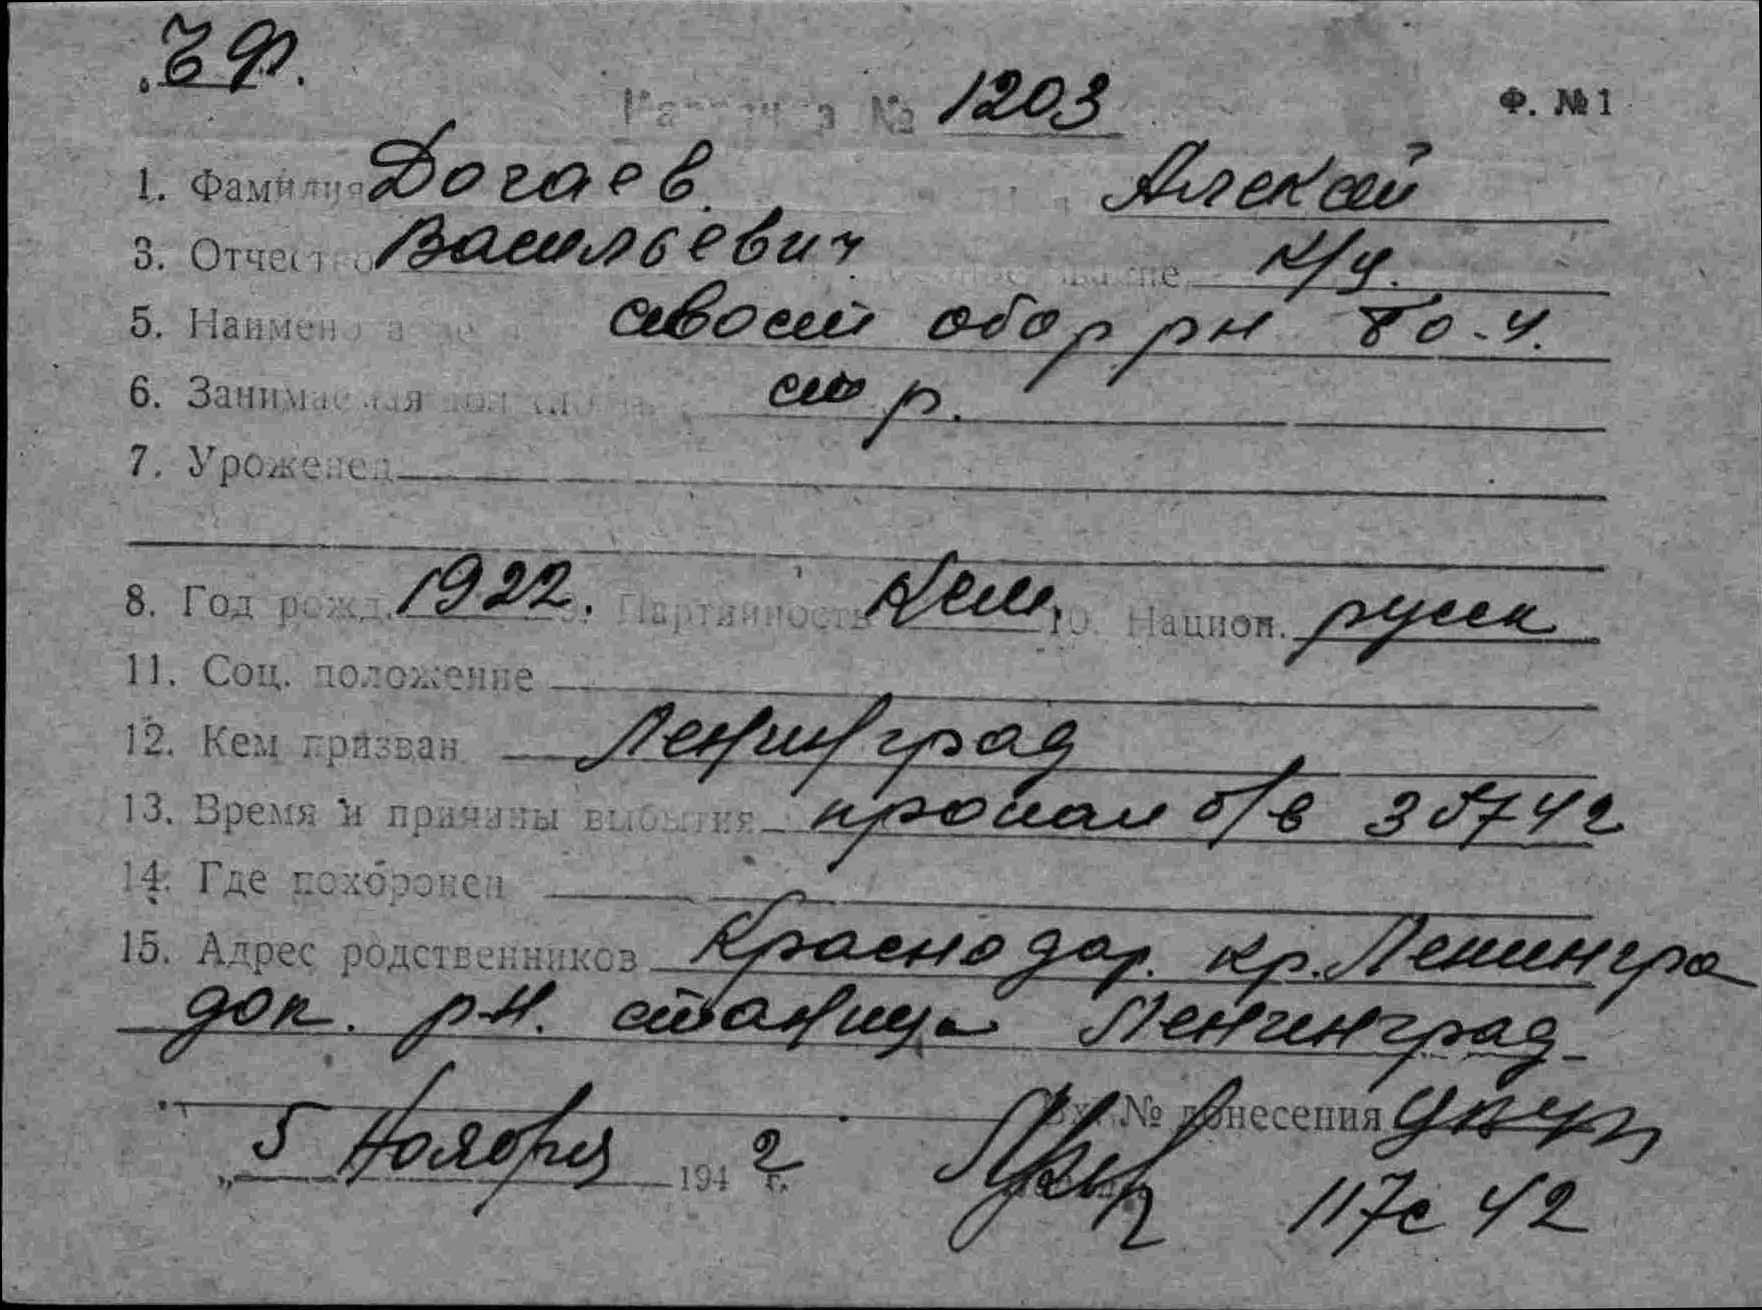 ЧФ.
Карточка № 1203 Ф. № 1
1. Фамилия Догаев Алексей
3. Отчество Васильевич звание к/ф.
5. Наимено свой обор рн
6. Занимаемая должность стр.
7. Уроженец
8. Год рожд. 1922. 9. Партийность Ксм. 10. Национ. русск
11. Соц. положение
12. Кем призван Ленинград
13. Время и причины выбытия пропал б/в 3 VII 42
14. Где похоронен
15. Адрес родственников Краснодар. кр. Ленингра
дск. р-н. станица Ленинград
5 Ноября 194 2 г. Вх. № донесения
117с 42